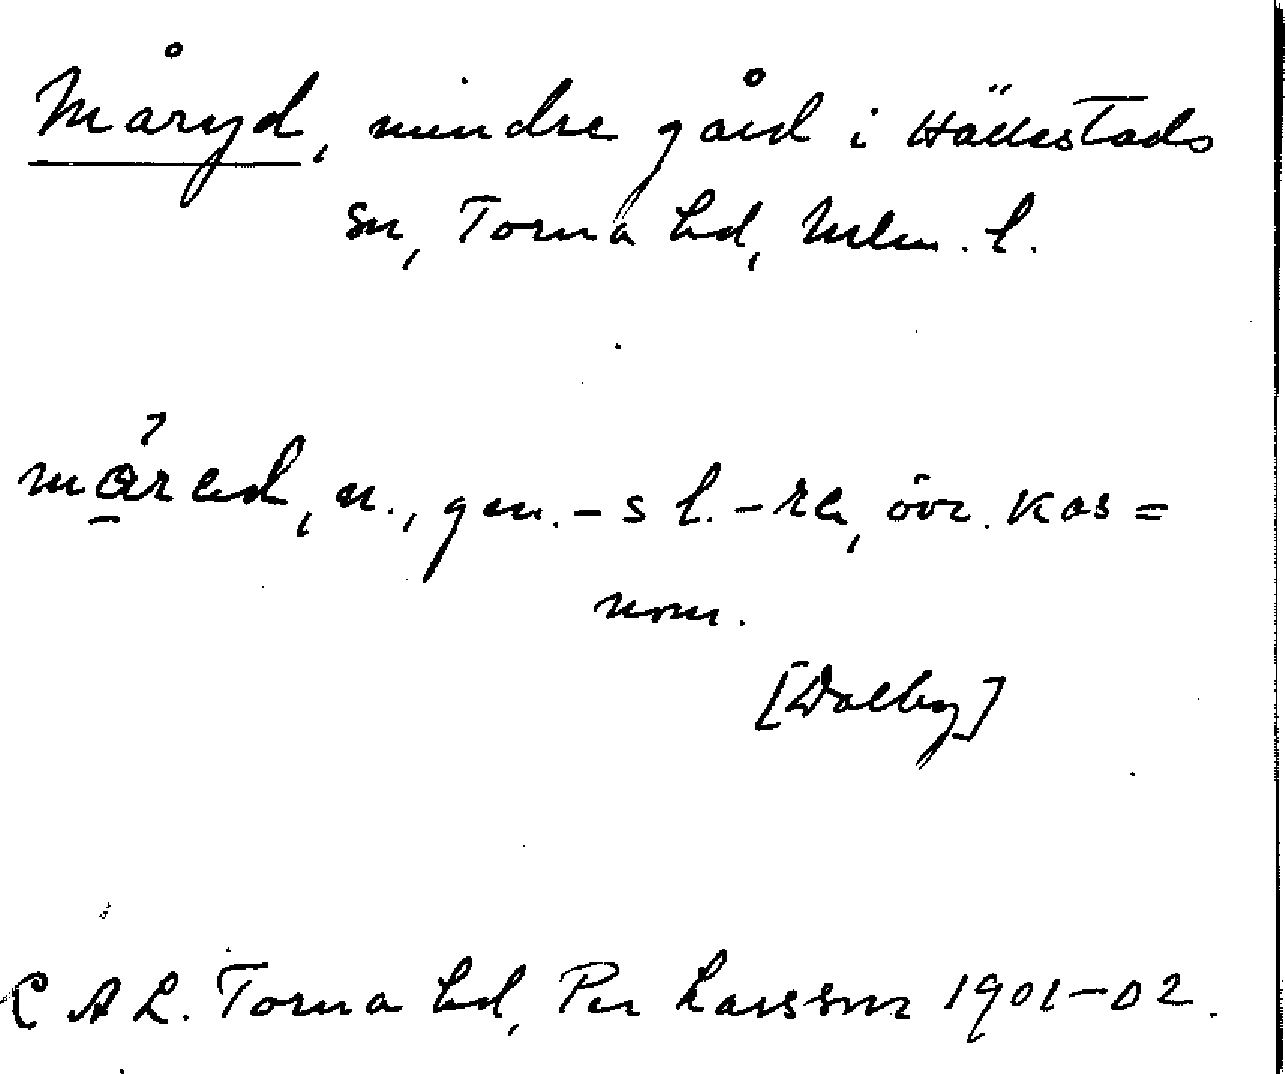 Måryd, mindre gård i Hällestads
sn, Torna hd, Mlm. l.
måred, n., gen. -s l. -rɛ, övr. kas =
nom.
[Dalby]
L A L. Torna hd, Per Larsson 1901-02.